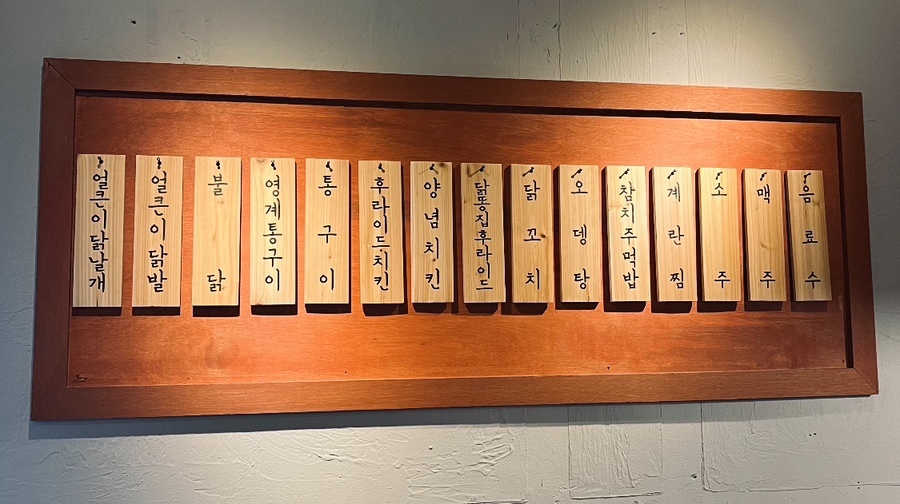 얼큰이닭날개
얼큰이닭발
불닭
영계통구이
통구이
후라이드치킨
양념치킨
닭똥집후라이드
닭꼬치
오뎅탕
참치주먹밥
계란찜
소주
맥주
음료수